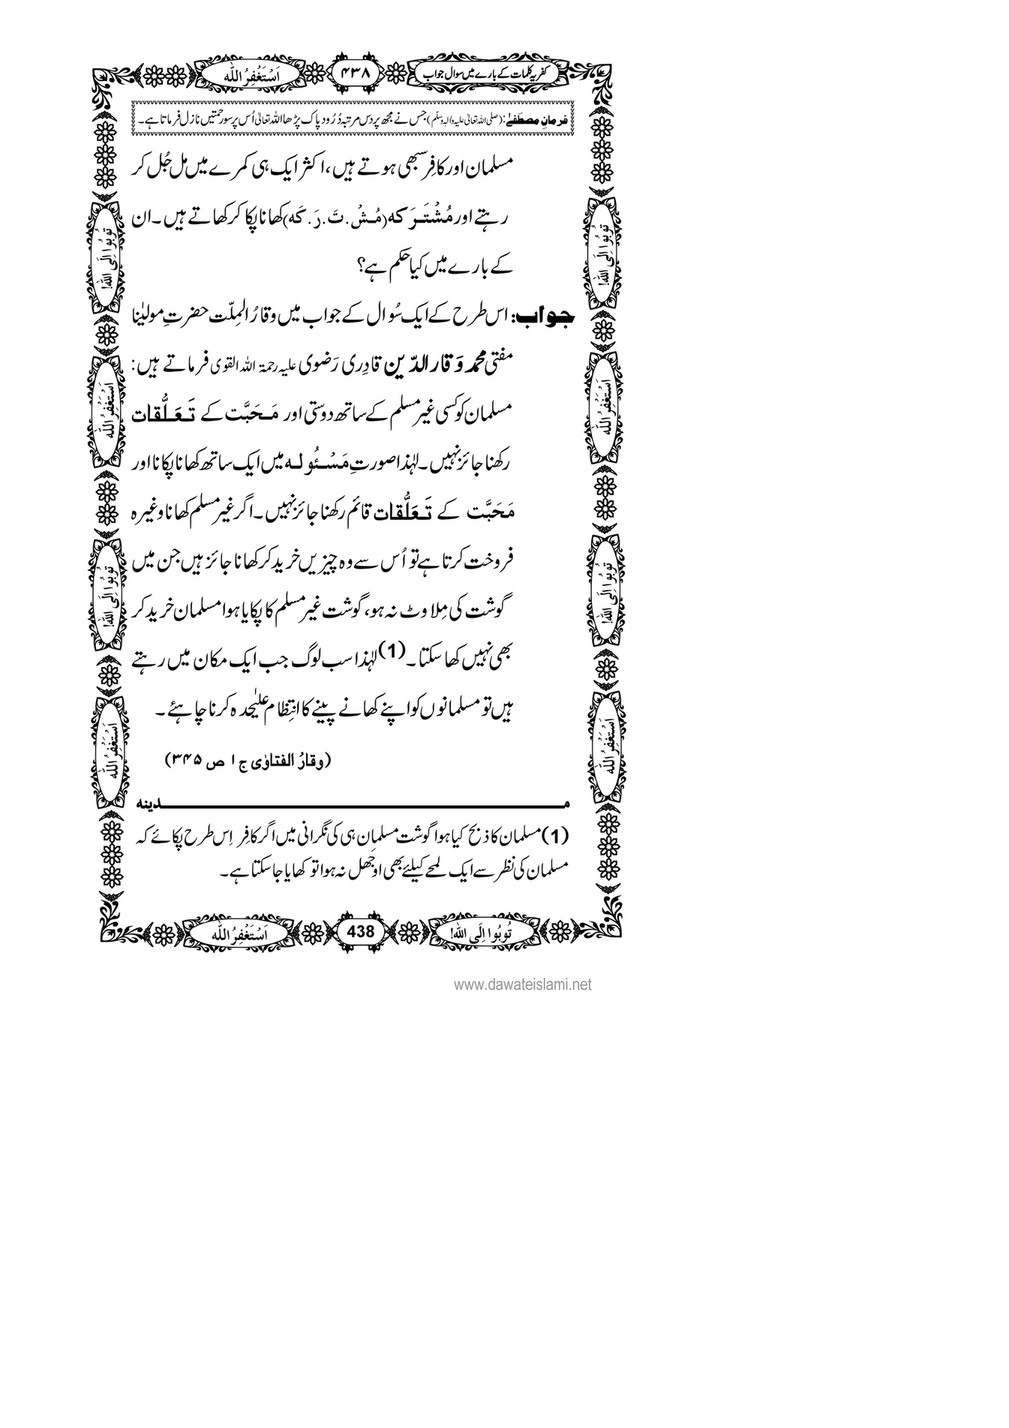 کفریہ کلمات کے بارے میں سوال جواب
۴۳۸
اَسْتَغْفِرُ اللّٰه
فرمانِ مصطفٰے: (صلی اللہ تعالیٰ علیہ والہ وسلّم) جس نے مجھ پر دس مرتبہ دُرُود پاک پڑھا اللہ تعالیٰ اُس پر سو رحمتیں نازل فرماتا ہے۔
مسلمان اور کافِر سبھی ہوتے ہیں، اکثر ایک ہی کمرے میں مل جُل کر
رہتے اور مُشْتَرَکہ (مُشْ۔تَ۔رَ۔کَہ) کھانا پکا کر کھاتے ہیں۔ ان
کے بارے میں کیا حکم ہے؟
جواب: اس طرح کے ایک سُوال کے جواب میں وقارُ الملِّت حضرتِ مولیٰنا
مفتی محمد وَقارالدّین قادِری رَضوی علیہ رحمۃ اللہ القوی فرماتے ہیں:
مسلمان کو کسی غیر مسلم کے ساتھ دوستی اور مَحَبَّت کے تَعَلُّقات
رکھنا جائز نہیں۔ لہٰذا صورتِ مَسْئُولہ میں ایک ساتھ کھانا پکانا اور
مَحَبَّت کے تَعَلُّقات قائم رکھنا جائز نہیں۔ اگر غیر مسلم کھانا وغیرہ
فروخت کرتا ہے تو اُس سے وہ چیزیں خرید کر کھانا جائز ہیں جن میں
گوشت کی مِلاوٹ نہ ہو، گوشت غیر مسلم کا پکایا ہوا مسلمان خرید کر
بھی نہیں کھا سکتا۔ (1) لہٰذا سب لوگ جب ایک مکان میں رہتے
ہیں تو مسلمانوں کو اپنے کھانے پینے کا انتِظام علیٰحدہ کرنا چاہئے۔
(وقارُ الفتاوٰی ج ۱ ص ۳۴۵)
مــدینہ
(1) مسلمان کا ذبح کیا ہوا گوشت مسلمان ہی کی نگرانی میں اگر کافِر اِس طرح پکائے کہ
مسلمان کی نظر سے ایک لمحے کیلئے بھی اَوجھل نہ ہوا تو کھایا جا سکتا ہے۔
تُوبُوا اِلَی اللّٰه!
438
اَسْتَغْفِرُ اللّٰه
تُوبُوا اِلَی اللّٰه!
اَسْتَغْفِرُ اللّٰه
تُوبُوا اِلَی اللّٰه!
اَسْتَغْفِرُ اللّٰه
تُوبُوا اِلَی اللّٰه!
اَسْتَغْفِرُ اللّٰه
تُوبُوا اِلَی اللّٰه!
اَسْتَغْفِرُ اللّٰه
www.dawateislami.net